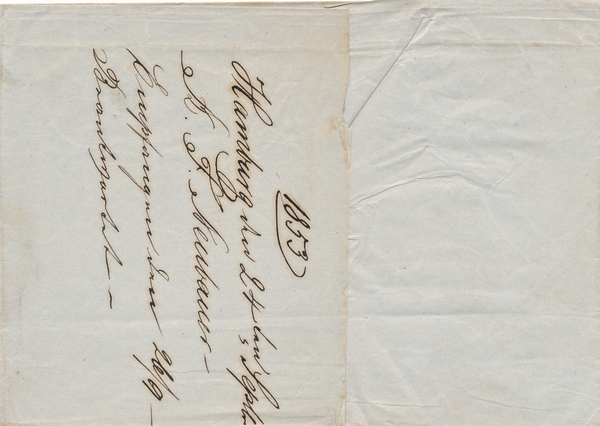 1853
Hamburg den 24ten Sptb
A. F. Neubauer –
Empfangen den 26/9 –
Beantwortet –